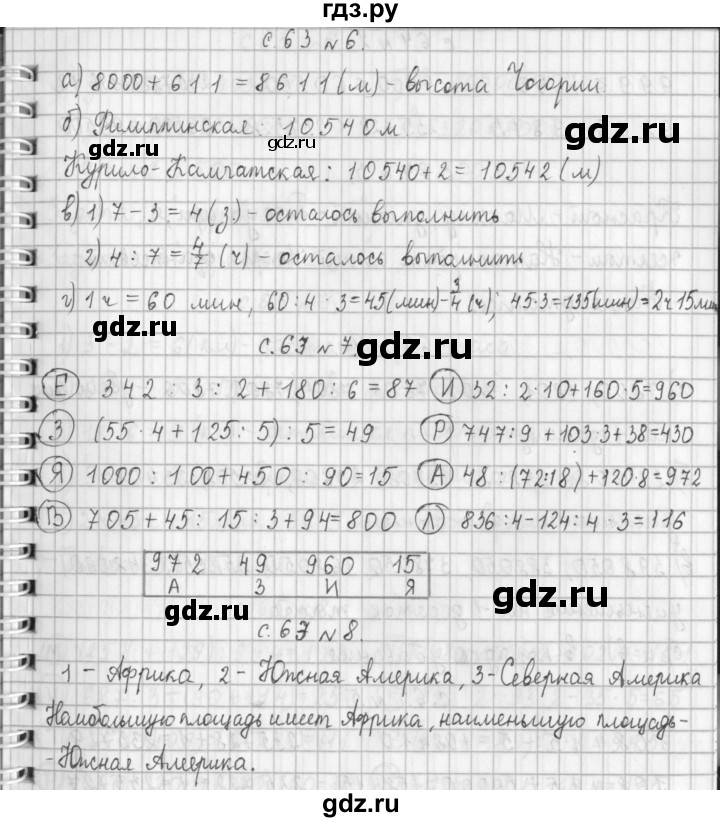 гдз.ру
с.63 №6.
а) 8000+611=8611(м)- высота Чогории.
б) Филиппинская: 10540м.
gdz.ru
gdz.ru
gdz.ru
Курило-Камчатская: 10540+2=10542(м)
в) 1) 7-3=4(з.)- осталось выполнить
2) 4:7=4/7(ч)- осталось выполнить
г) 1ч=60 мин, 60:4·3=45(мин)-3/4(ч); 45·3=135(мин)=2ч15мин
gdz.ru
с.63 №7.
gdz.ru
Е 342:3:2+180:6=87 И 32:2·10+160·5=960
З (55·4+125:5):5=49 Р 747:9+103·3+38=430
Я 1000:100+450:90=15 А 48:(72:18)+120·8=972
В 705+45:15:3+94=800 Л 836:4-124:4·3=116
gdz.ru
gdz.ru
972 49 960 15
А З И Я
gdz.ru
gdz.ru
с.63 №8.
1- Африка, 2- Южная Америка, 3-Северная Америка
Наибольшую площадь имеет Африка, наименьшую площадь-
-Южная Америка.
gdz.ru
gdz.ru
gdz.ru